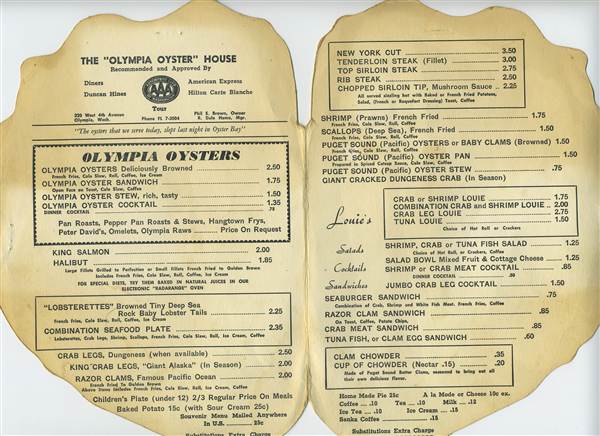 THE "OLYMPIA OYSTER" HOUSE
Recommended and Approved By
Diners
Duncan Hines
AAA
American Express
Hilton Carte Blanche
Tour
320 West 4th Avenue
Olympia, Wash.
Phone FL 7-5504
Phil E. Brown, Owner
R. Dale Heme, Mgr.
"The oysters that we serve today, slept last night in Oyster Bay"
OLYMPIA OYSTERS
OLYMPIA OYSTERS Deliciously Browned 2.50
French Fries, Cole Slaw, Roll, Coffee, Ice Cream
OLYMPIA OYSTER SANDWICH 1.75
Open Face on Toast, Cole Slaw, Coffee
OLYMPIA OYSTER STEW, rich, tasty 1.50
OLYMPIA OYSTER COCKTAIL 1.35
DINNER COCKTAIL .75
Pan Roasts, Pepper Pan Roasts & Stews, Hangtown Frys,
Peter David's, Omelets, Olympia Raws Price On Request
KING SALMON 2.00
HALIBUT 1.85
Large Fillets Grilled to Perfection or Small Fillets French Fried to Golden Brown
Includes French Fries, Cole Slaw, Roll, Coffee, Ice Cream
FOR SPECIAL DIETS, TRY THEM BAKED IN NATURAL JUICES IN OUR
ELECTRONIC "RADARANGE" OVEN
"LOBSTERETTES" Browned Tiny Deep Sea
Rock Baby Lobster Tails 2.25
French Fries, Cole Slaw, Roll, Coffee, Ice Cream
COMBINATION SEAFOOD PLATE 2.35
Lobsterettes, Crab Legs, Shrimp, Scallops, French Fries, Cole Slaw, Roll, Ice Cream, Coffee
CRAB LEGS, Dungeness (when available) 2.50
KING CRAB LEGS, "Giant Alaska" (In Season) 2.00
RAZOR CLAMS, Famous Pacific Ocean 2.00
French Fried To Golden Brown
Above Items Includes French Fries, Cole Slaw, Roll, Ice Cream, Coffee
Children's Plate (under 12) 2/3 Regular Price On Meals
Baked Potato 15c (with Sour Cream 25c)
Souvenir Menu Mailed Anywhere
In U.S. 25c
Substitutions Extra Charge
NEW YORK CUT 3.50
TENDERLOIN STEAK (Fillet) 3.00
TOP SIRLOIN STEAK 2.75
RIB STEAK 2.50
CHOPPED SIRLOIN TIP, Mushroom Sauce 2.25
All served sizzling hot with Baked or French Fried Potatoes,
Salad, (French or Roquefort Dressing) Toast, Coffee
SHRIMP (Prawns) French Fried 1.75
French Fries, Cole Slaw, Roll, Coffee
SCALLOPS (Deep Sea), French Fried 1.50
French Fries, Cole Slaw, Roll, Coffee
PUGET SOUND (Pacific) OYSTERS or BABY CLAMS (Browned) 1.50
French Fries, Cole Slaw, Roll, Coffee
PUGET SOUND (Pacific) OYSTER PAN 1.50
Prepared in Spiced Catsup Sauce, Cole Slaw, Coffee
PUGET SOUND (Pacific) OYSTER STEW .75
GIANT CRACKED DUNGENESS CRAB (In Season)
Louie's
CRAB or SHRIMP LOUIE 1.75
COMBINATION CRAB and SHRIMP LOUIE 2.00
CRAB LEG LOUIE 2.75
TUNA LOUIE 1.50
Choice of Hot Roll or Crackers
Salads
SHRIMP, CRAB or TUNA FISH SALAD 1.25
Choice of Hot Roll, or Crackers, Coffee
SALAD BOWL Mixed Fruit & Cottage Cheese 1.25
Cocktails
SHRIMP or CRAB MEAT COCKTAIL .85
DINNER COCKTAIL .50
Sandwiches
JUMBO CRAB LEG COCKTAIL 1.50
SEABURGER SANDWICH .75
Combination of Crab, Shrimp and White Fish Meat. French Fries, Coffee
RAZOR CLAM SANDWICH .85
On Toast, Coffee, Potato Chips
CRAB MEAT SANDWICH .85
TUNA FISH, or CLAM EGG SANDWICH .60
CLAM CHOWDER .35
CUP OF CHOWDER (Nectar .15) .20
Made of Puget Sound Butter Clams, seasoned to bring out all
their own delicious flavor.
Home Made Pie 25c A la Mode or Cheese 10c ex.
Coffee .10 Tea .10 Milk .12
Ice Tea .10 Ice Cream .15
Sanka Coffee .15
Substitutions Extra Charge